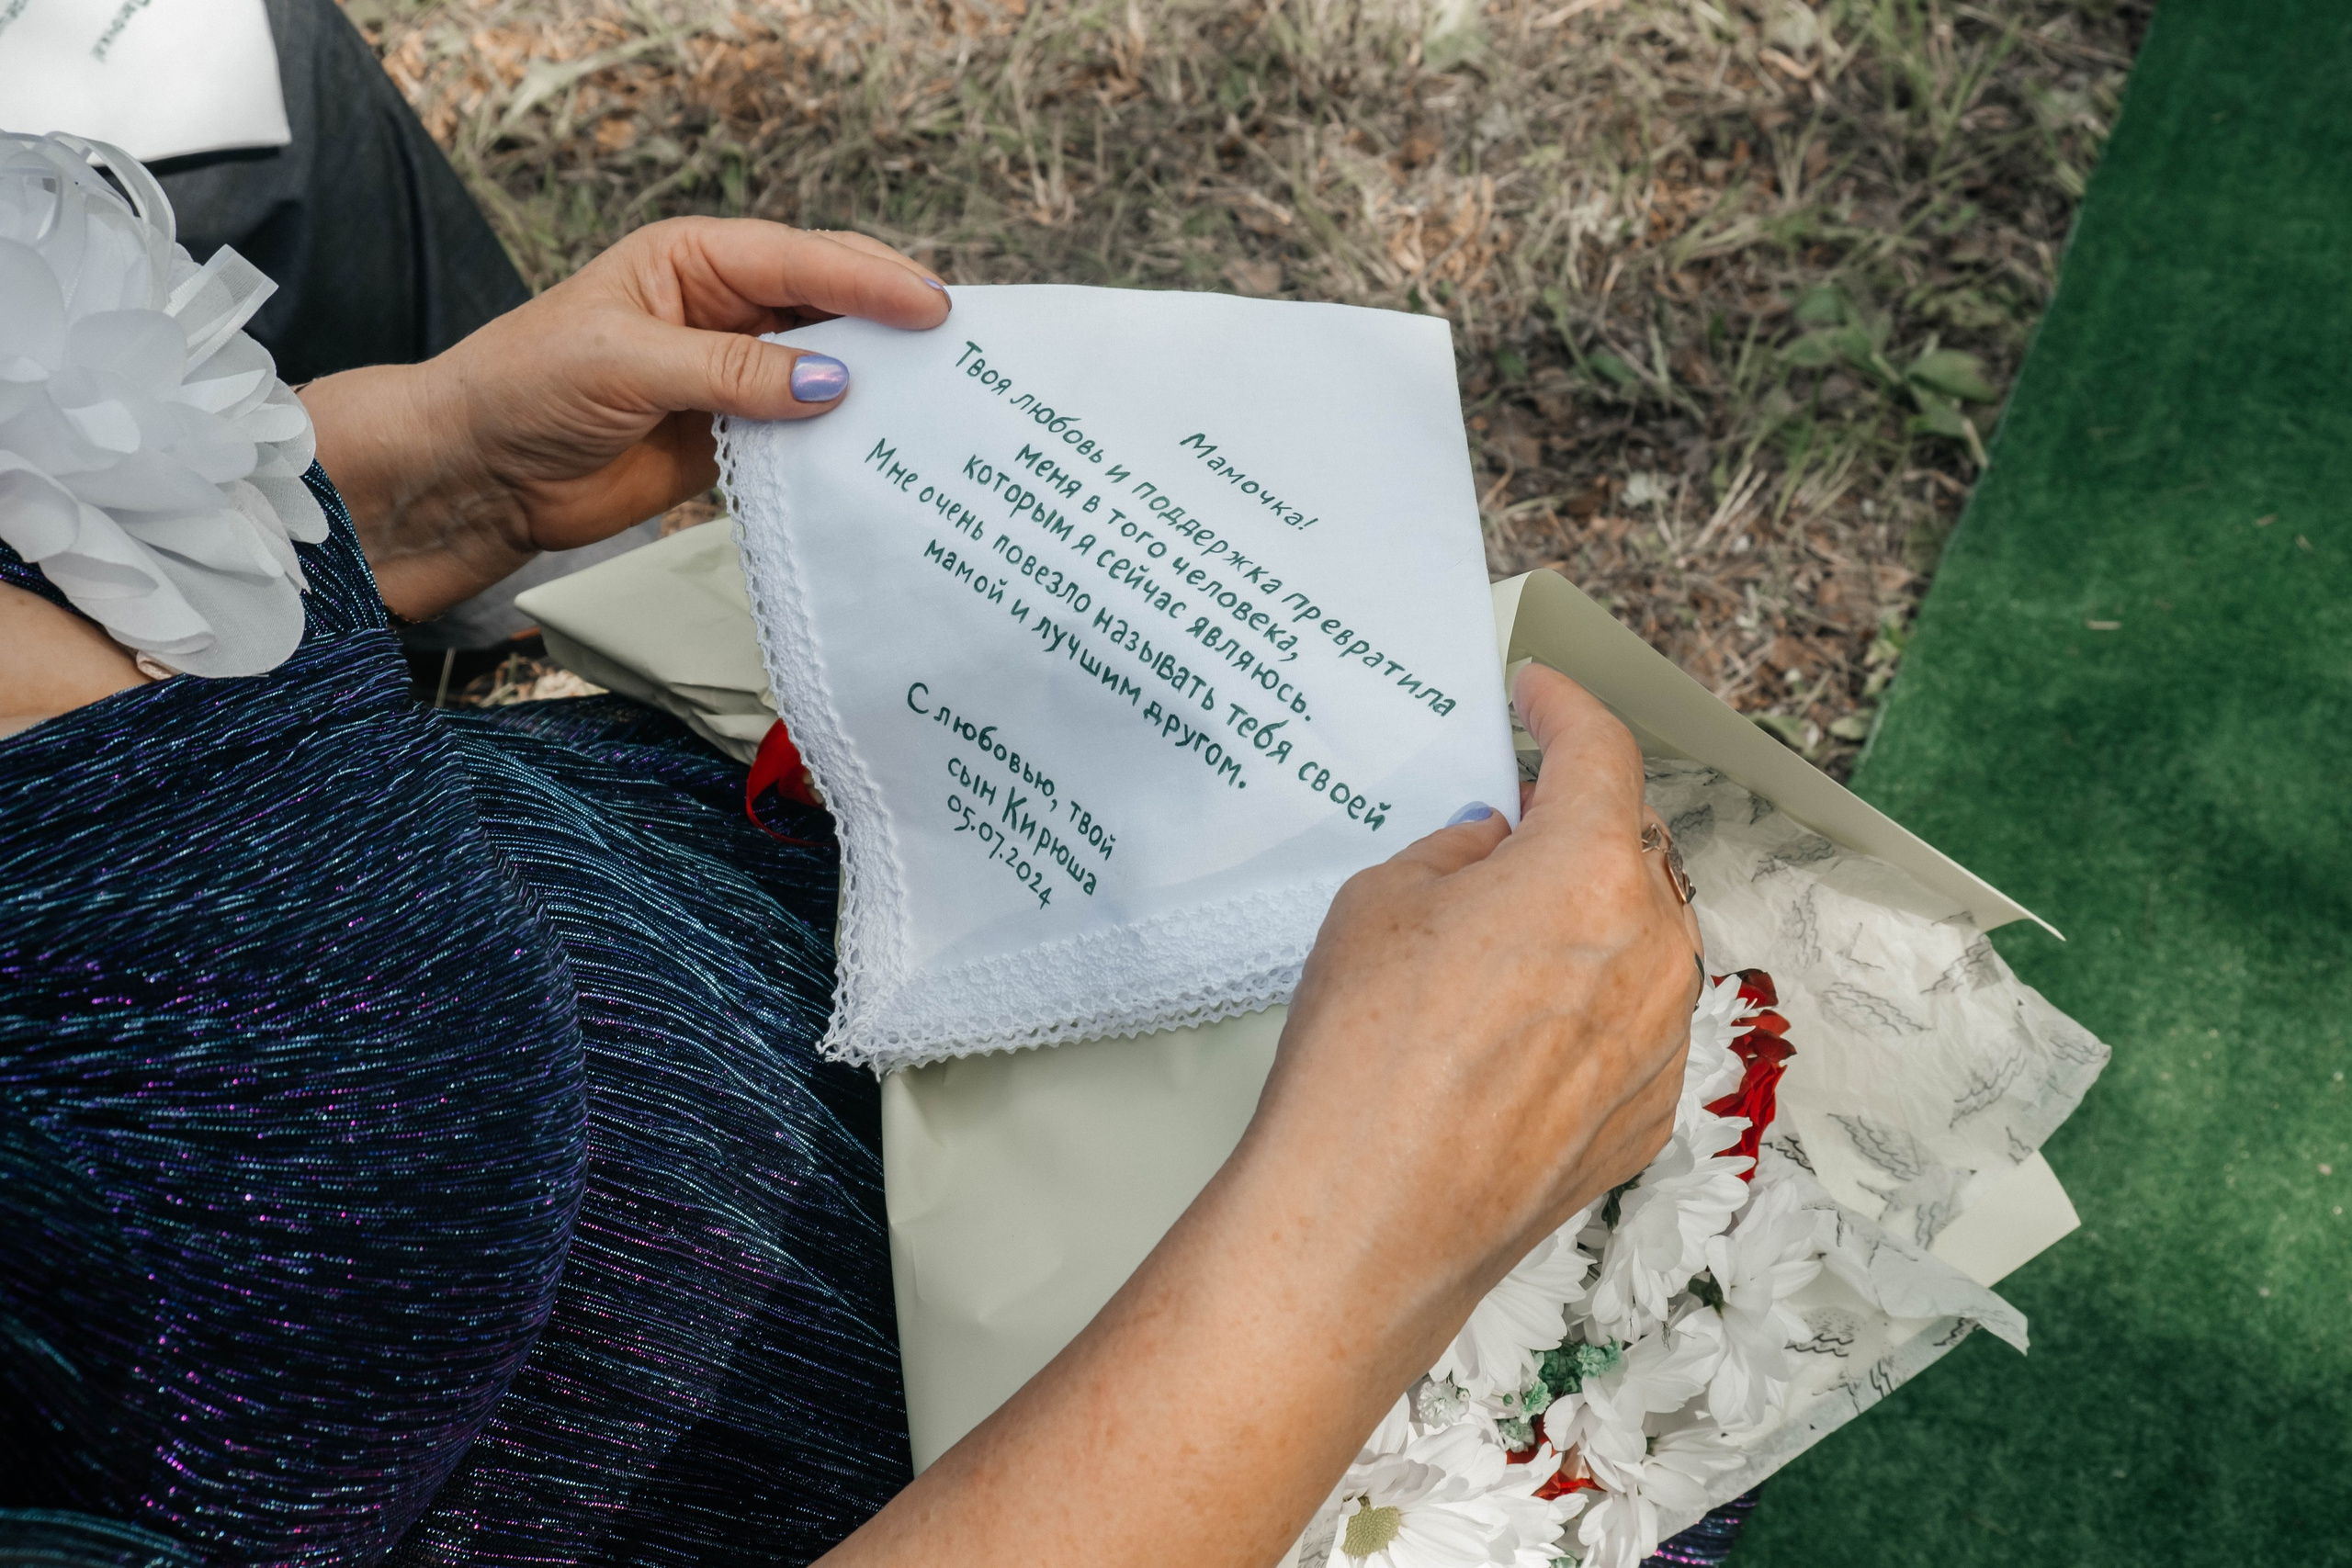 Мамочка!
Твоя любовь и поддержка превратила
меня в того человека,
которым я сейчас являюсь.
Мне очень повезло называть тебя своей
мамой и лучшим другом.
С любовью, твой
сын Кирюша
05.07.2024